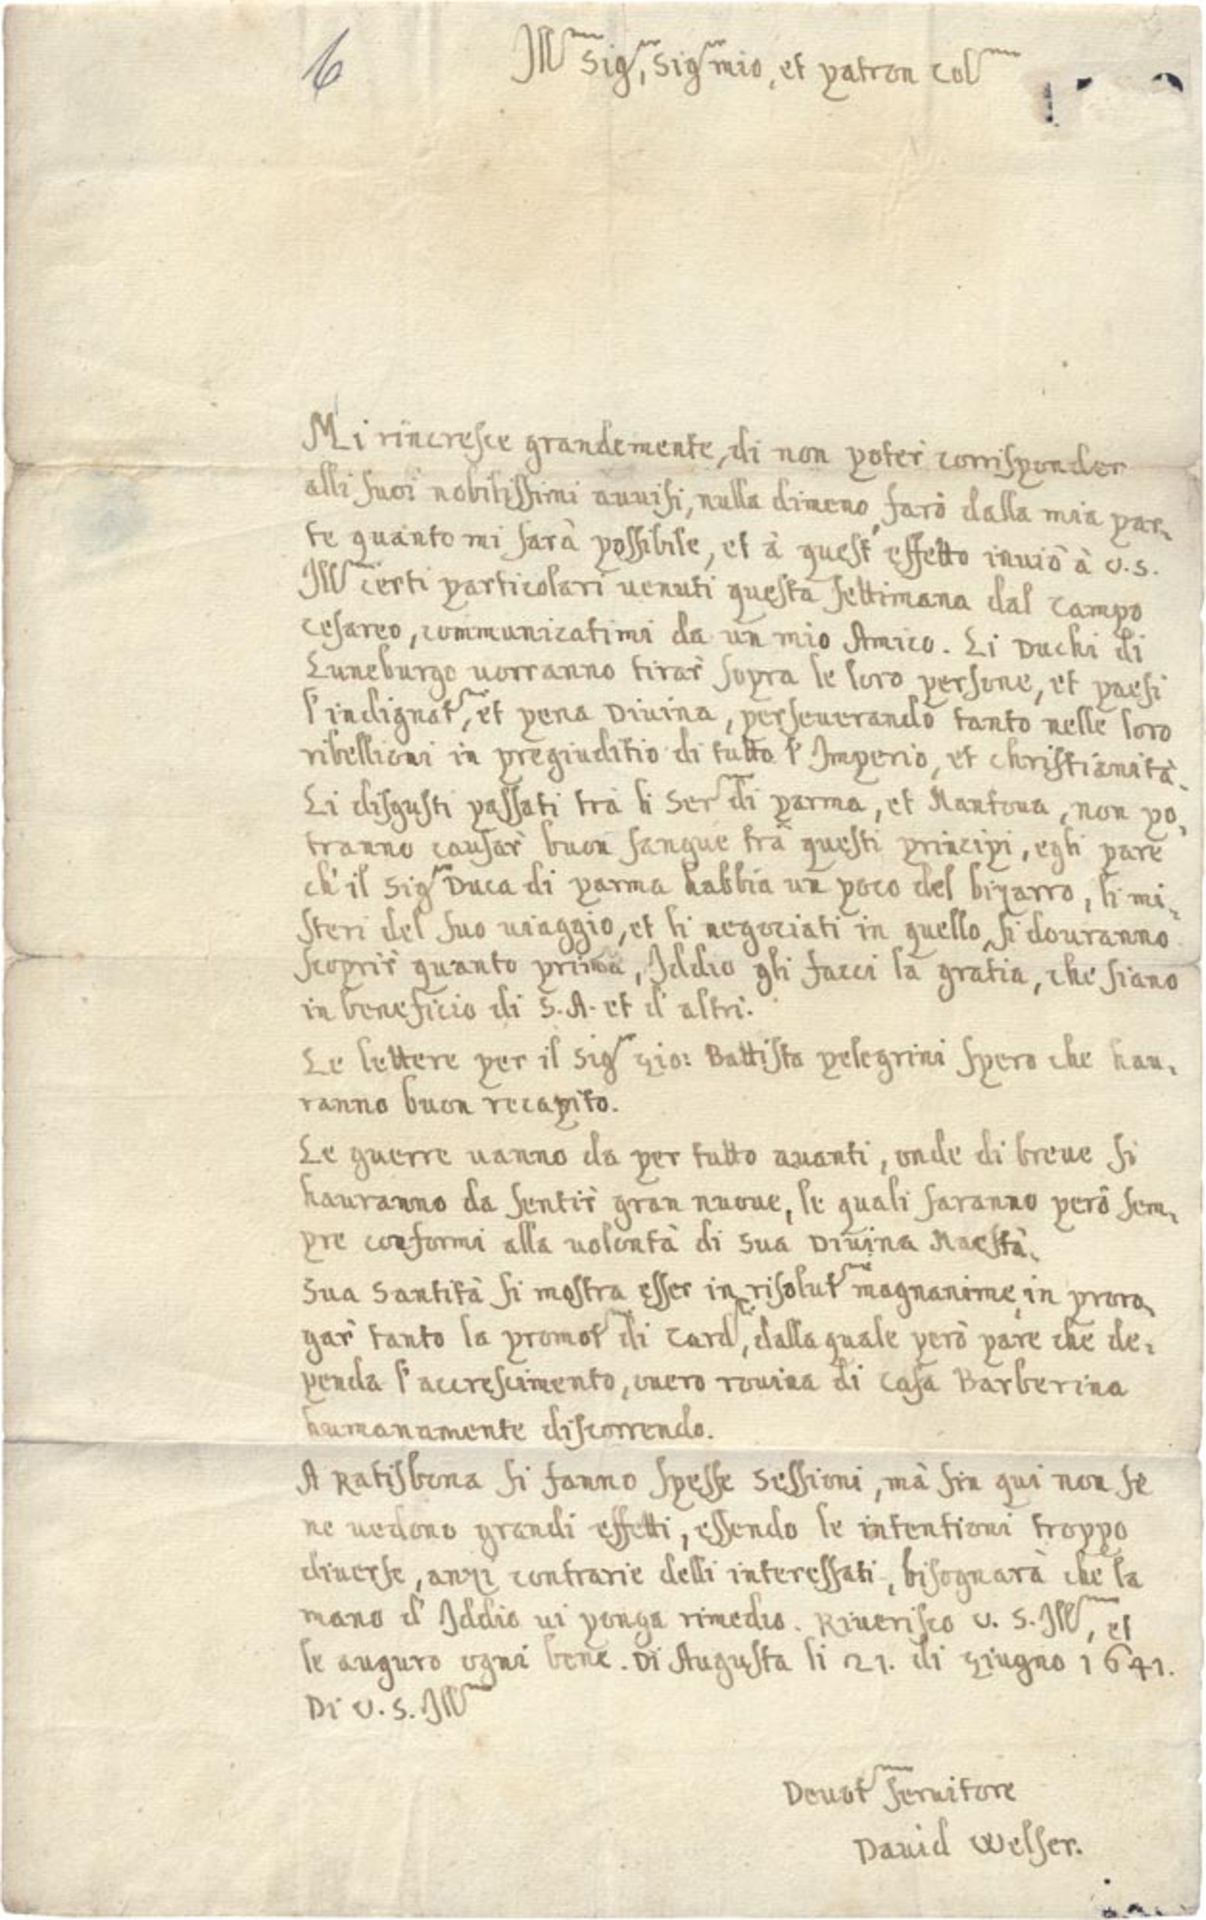 6
Ill^mo Sig^r, Sig^r mio, et patron col^mo
Mi rincresce grandemente, di non poter corrisponder
alli suoi nobilissimi auuisi, nulla dimeno, farò dalla mia par-
te quanto mi sarà possibile, et à quest' effetto inuio à V.S.
Ill^ma certi particolari uenuti questa settimana dal campo
cesareo, communicatimi da un mio Amico. Li Duchi di
Luneburgo uorranno tirar sopra le loro persone, et paesi
l'indignat^ne, et pena Diuina, perseuerando tanto nelle loro
ribellioni in pregiuditio di tutto l'Imperio, et christianità.
Li disgusti passati trà li Ser^mi di parma, et Mantoua, non po-
tranno causar buon sangue trà questi principi, egli pare
ch'il Sig^r Duca di parma habbia un poco del bizarro, li mi-
steri del suo uiaggio, et li negociati in quello, si douranno
scoprir quanto prima, Iddio gli facci la gratia, che siano
in beneficio di S.A. et d'altri.
Le lettere per il Sig^r Gio: Battista pelegrini spero che hau-
ranno buon recapito.
Le guerre uanno da per tutto auanti, onde di breue si
hauranno da sentir gran nuoue, le quali saranno però sem-
pre conformi alla uolontà di Sua Diuina Maestà.
Sua Santità si mostra esser in risolut^ne magnanime, in proro-
gar tanto la promot^ne di Card^li, dalla quale però pare che de-
penda l'accrescimento, ouero rouina di Casa Barberina
humanamente discorrendo.
A Ratisbona si fanno spesse Sessioni, mà fin qui non se
ne uedono grandi effetti, essendo le intentioni troppo
diuerse, anzi contrarie delli interessati, bisognarà che la
mano d'Iddio ui ponga rimedio. Riuerisco V.S. Ill^ma, et
le auguro ogni bene. Di Augusta li 21. di Giugno 1641.
Di V.S. Ill^ma
Deuot^mo seruitore
Dauid Welser.